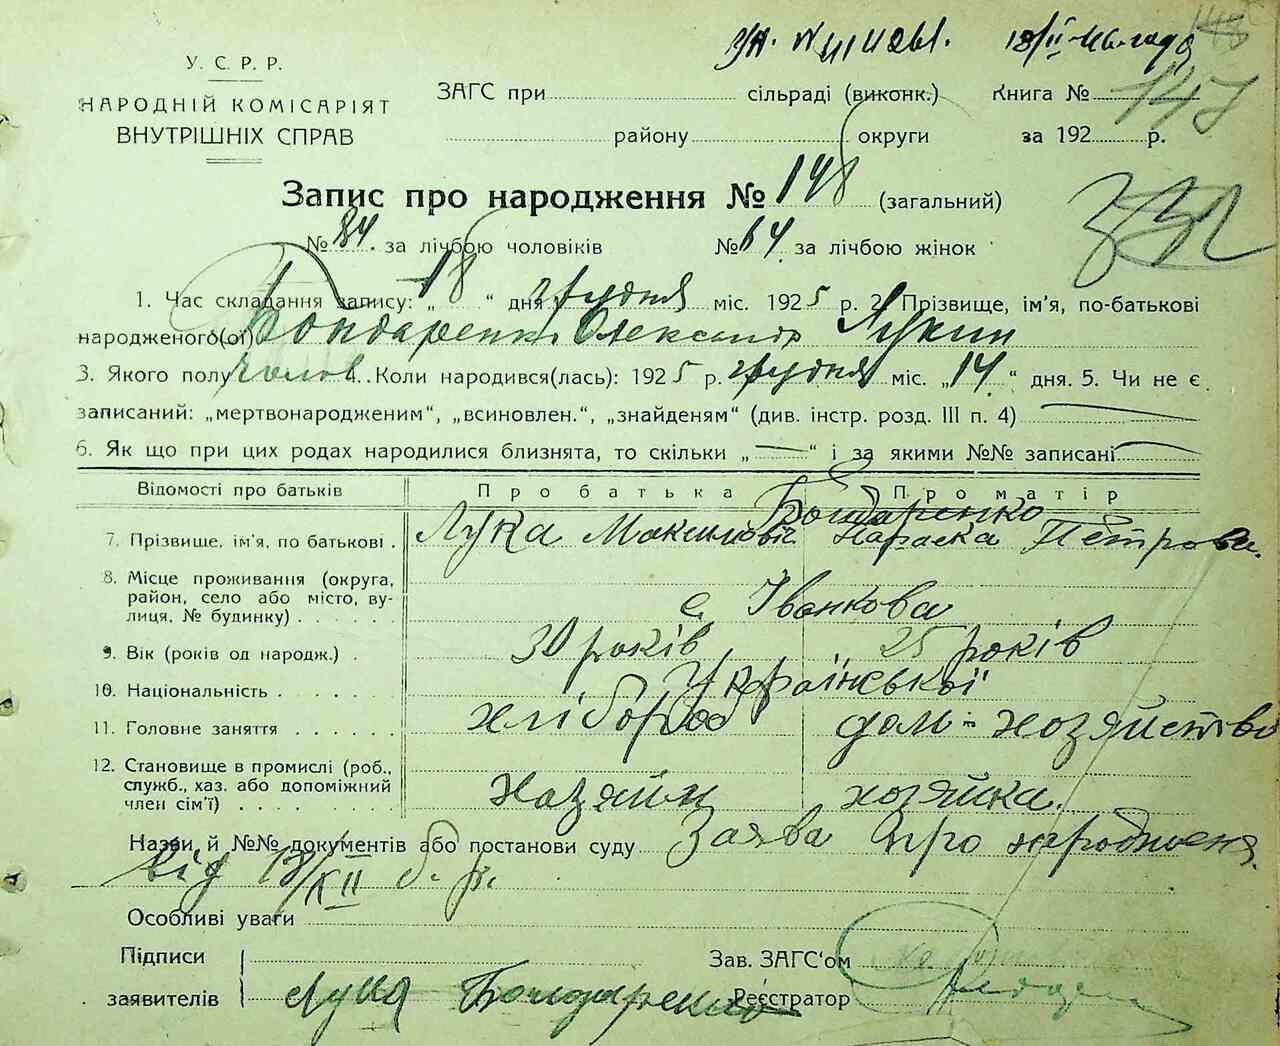 148
147
332
У. С. Р. Р.
НАРОДНІЙ КОМІСАРІЯТ
ВНУТРІШНІХ СПРАВ
ЗАГС при сільраді (виконк.) Книга №
району округи за 192 р.
Запис про народження № 148 (загальний)
№ 84. за лічбою чоловіків № 64. за лічбою жінок
1. Час складання запису: „18“ дня грудня міс. 1925 р. 2. Прізвище, ім'я, по-батькові
народженого(ої) Бондаренко Олександр Лукин
3. Якого полу чолов. 4. Коли народився(лась): 1925 р. грудня міс. „14.“ дня. 5. Чи не є
записаний: „мертвонародженим“, „всиновлен.“, „знайденям“ (див. інстр. розд. III п. 4)
6. Як що при цих родах народилися близнята, то скільки „—“ і за якими №№ записані
Відомості про батьків Про батька Про матір
Бондаренко
7. Прізвище, ім'я, по батькові . Лука Максимович Параска Петрова.
8. Місце проживання (округа,
район, село або місто, ву-
лиця, № будинку) . . . . . с. Іванкова
9. Вік (років од народж.) . 30 років 25 років
10. Національність . . . . . Української
11. Головне заняття . . . . . . хлібороб дом-хозяйство
12. Становище в промислі (роб.,
служб., хаз. або допоміжний
член сім'ї) . . . . . . . . хазяйн хозяйка.
Назви й №№ документів або постанови суду Заява про народженя
від 18/XII б. р.
Особливі уваги
Підписи Зав. ЗАГС'ом
заявителів Лука Бондаренко Реєстратор